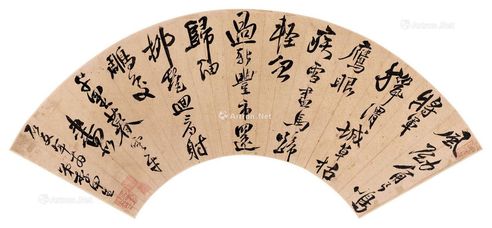 風勁角弓鳴
將軍
獵渭城草枯
鷹眼
疾雪盡馬蹄
輕忽
過新豐市還
歸細
柳營回看射
雕處
千里暮雲平
Artron.Net